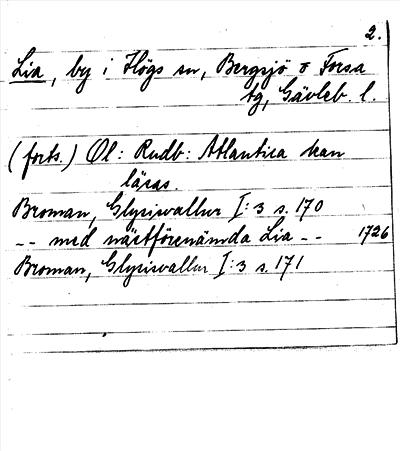 2.
Lia, by i Högs sn, Bergsjö o Forsa
tg, Gävleb. l.
(forts.) Ol: Rudb: Atlantica kan
läras.
Broman, Glysisvallur I:3 s. 170
-- med nästförenämda Lia -- 1726
Broman, Glysisvallur I:3 s. 171